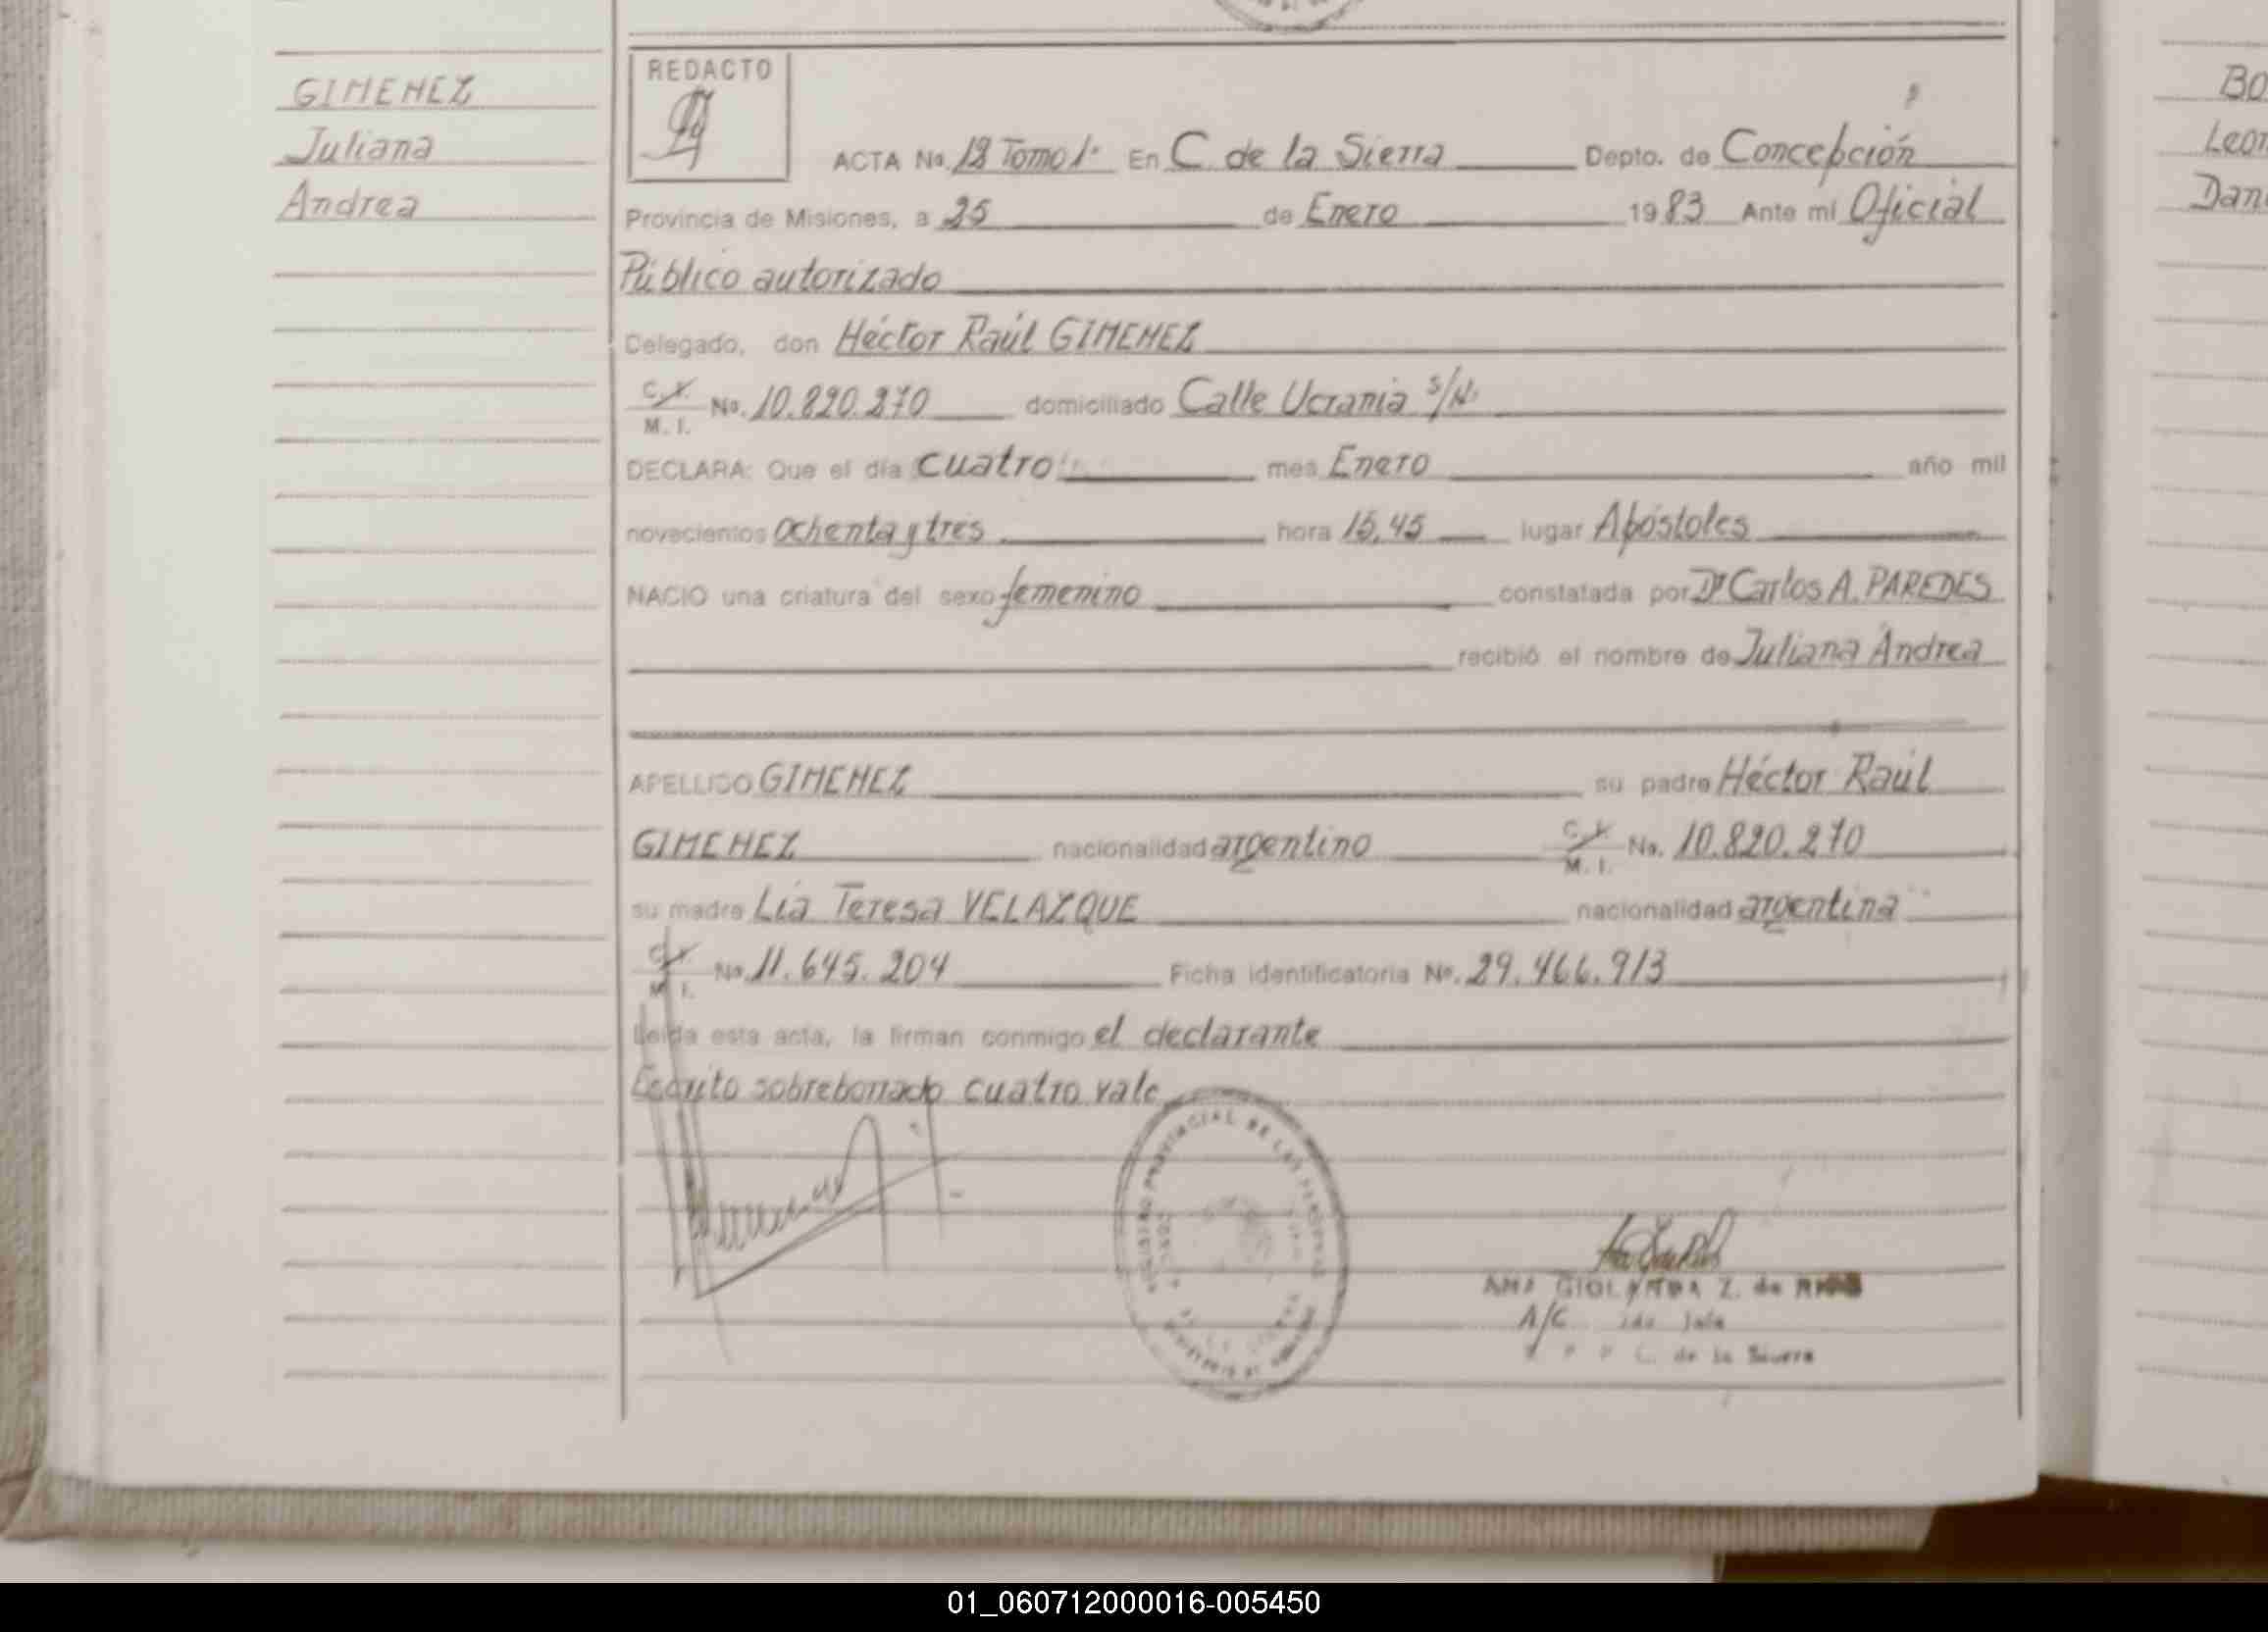 GIMENEZ
Juliana
Andrea
REDACTO
ACTA No. 18 Tomo 1º En C. de la Sierra Depto. de Concepción
Provincia de Misiones, a 25 de Enero 1983 Ante mí Oficial
Público autorizado
Delegado, don Héctor Raúl GIMENEZ
C. I. M. I. No. 10.820.270 domiciliado Calle Ucrania S/N.
DECLARA: Que el día cuatro mes Enero año mil
novecientos ochenta y tres hora 15,45 lugar Apóstoles
NACIO una criatura del sexo femenino constatada por Dr Carlos A. PAREDES
recibió el nombre de Juliana Andrea
APELLIDO GIMENEZ su padre Héctor Raúl
GIMENEZ nacionalidad argentino C. I. M. I. No. 10.820.270
su madre Lía Teresa VELAZQUE nacionalidad argentina
C. I. M. I. No. 11.645.204 Ficha identificatoria No. 29.466.913
Leída esta acta, la firman conmigo el declarante
Escrito sobreborrado cuatro vale
REGISTRO PROVINCIAL DE LAS PERSONAS
ANA Z. de
A/C Jefe
C. de la Sierra
BO
Leon
Dani
01_060712000016-005450